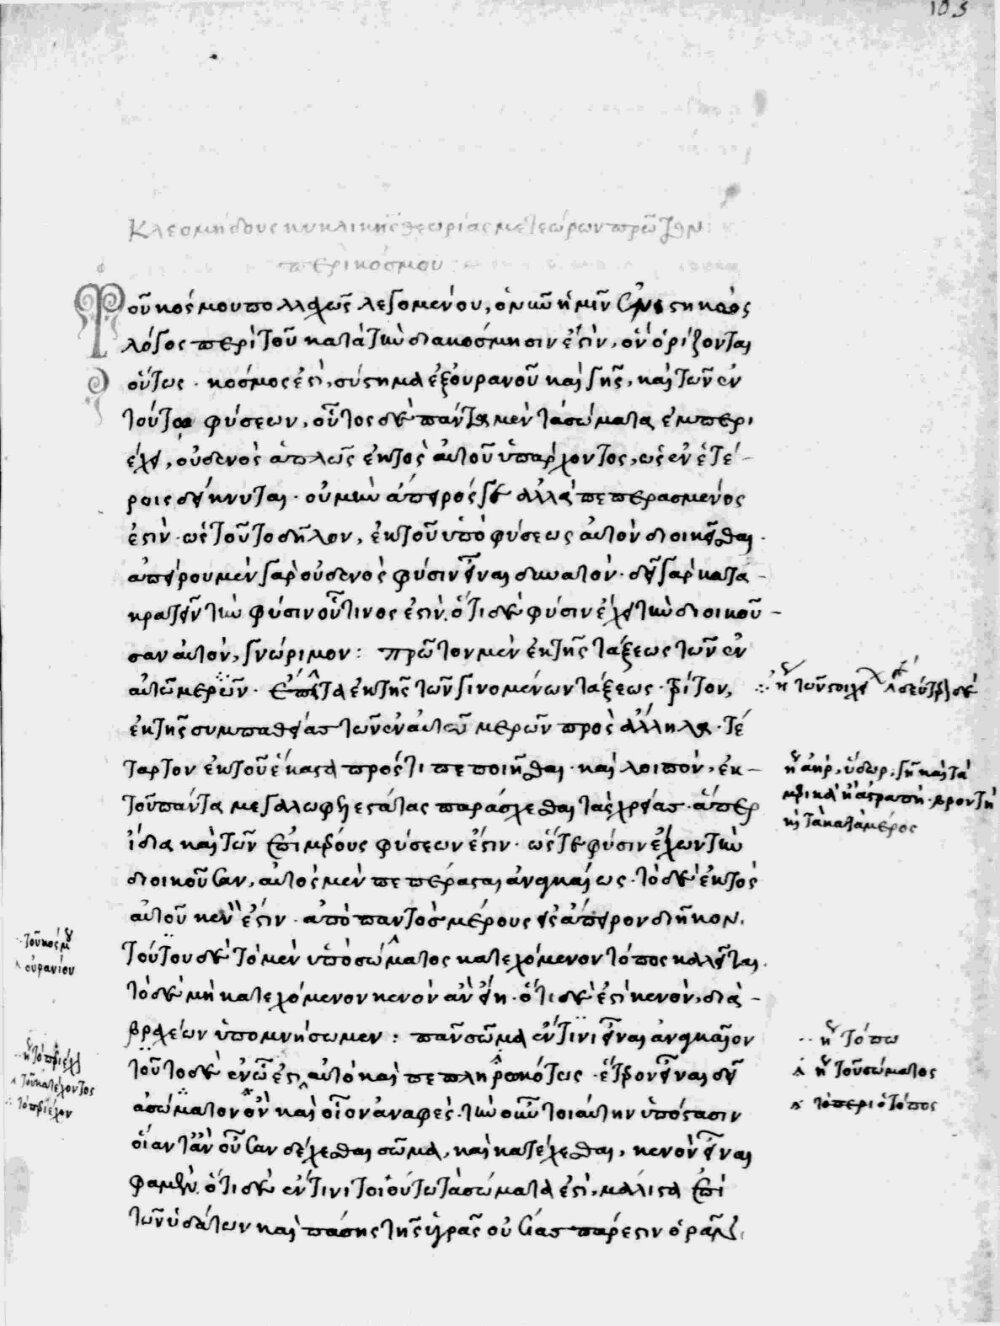 105
Κλεομήδους κυκλικῆς θεωρίας μετεώρων πρῶτον:
περὶ κόσμου:
Τοῦ κόσμου πολλαχῶς λεγομένου, ὁ νῦν ἡμῖν ἐνεστηκὼς
λόγος περὶ τοῦ κατὰ τὴν διακόσμησιν ἐστὶν, ὃν ὁρίζονται
οὕτως· κόσμος ἐστὶ, σύστημα ἐξ οὐρανοῦ καὶ γῆς, καὶ τῶν ἐν
τούτοις φύσεων, οὗτος δὲ πάντα μὲν τὰ σώματα ἐμπερι
έχει, οὐδενὸς ἁπλῶς ἐκτὸς αὐτοῦ ὑπάρχοντος, ὡς ἐν ἑτέ-
ροις δείκνυται· οὐ μὴν ἄπειρός γε ἀλλὰ πεπερασμένος
ἐστίν· ὡς τοῦτο δῆλον, ἐκ τοῦ ὑπὸ φύσεως αὐτὸν διοικεῖσθαι·
ἀπείρου μὲν γὰρ οὐδενὸς φύσιν εἶναι δυνατόν· δεῖ γὰρ κατα-
κρατεῖν τὴν φύσιν οὗτινος ἐστίν. ὅτι δὲ φύσιν ἔχει τὴν διοικοῦ-
σαν αὐτὸν, γνώριμον: πρῶτον μὲν ἐκ τῆς τάξεως τῶν ἐν
αὐτῷ μερῶν· ἔπειτα ἐκ τῆς τῶν γινομένων τάξεως· τρίτον,
ἐκ τῆς συμπαθείας τῶν ἐν αὐτῷ μερῶν πρὸς ἄλληλα· τέ
ταρτον ἐκ τοῦ ἕκαστα πρός τι πεποιῆσθαι· καὶ λοιπὸν, ἐκ-
τοῦ πάντα μεγαλωφελεστάτας παρέχεσθαι τὰς χρείας· ἅπερ
ἴδια καὶ τῶν ἐπὶ μέρους φύσεων ἐστίν· ὥστε φύσιν ἔχων τὴν
διοικοῦσαν, αὐτὸς μὲν πεπέρασται ἀναγκαίως· τὸ δὲ ἐκτὸς
αὐτοῦ κενὸν ἐστίν· ἀπὸ παντὸς μέρους εἰς ἄπειρον διῆκον.
τούτου δὲ τὸ μὲν ὑπὸ σώματος κατεχόμενον τόπος καλεῖται.
τὸ δὲ μὴ κατεχόμενον κενὸν ἂν εἴη· ὅτι δὲ ἐστὶ κενὸν, διὰ-
βραχέων ὑπομνήσωμεν: πᾶν σῶμα ἔν τινι εἶναι ἀναγκαῖον
τοῦτο δὲ ἐν ᾧ ἐστι, αὐτὸ καὶ πεπληρωκότως· ἕτερον εἶναι δεῖ
ἀσώματον ὂν καὶ οἷον ἀναφὲς· τὴν οὖν τοιαύτην ὑπόστασιν
οἵαν τ' ἂν οὖσαν δέχεσθαι σῶμα, καὶ κατέχεσθαι, κενὸν εἶναι
φαμέν. ὅτι δὲ ἔν τινι τοιούτῳ τὰ σώματά ἐστι, μάλιστα ἐπὶ
τῶν ὑδάτων καὶ πάσης τῆς ὑγρᾶς οὐσίας πάρεστιν ὁρᾶν.
ἢ ἀὴρ, ὕδωρ, γῆ καὶ τὰ
μερικὰ ἢ ἀστραπὴ· βροντὴ
καὶ τὰ κατὰ μέρος
τοῦ κόσμου
οὐρανίου
ἢ τόπῳ
ἢ τοῦ σώματος
τὸ περι ὁ τόπος